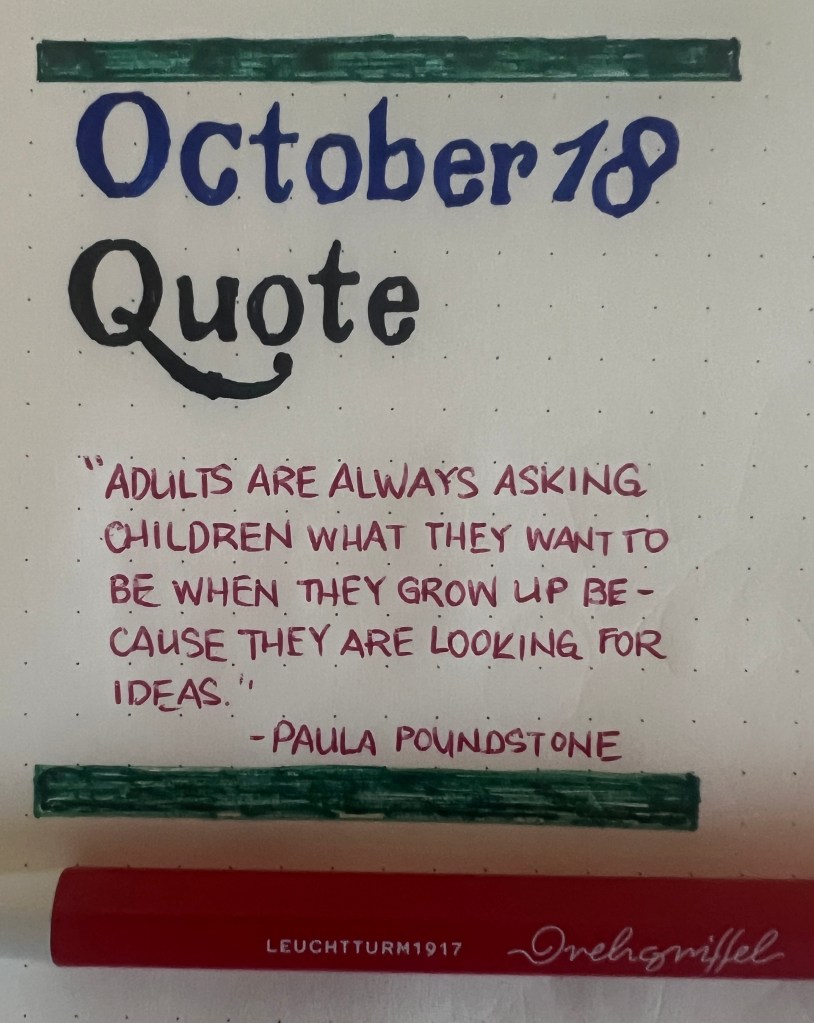 October 18
Quote
"ADULTS ARE ALWAYS ASKING
CHILDREN WHAT THEY WANT TO
BE WHEN THEY GROW UP BE-
CAUSE THEY ARE LOOKING FOR
IDEAS."
-PAULA POUNDSTONE
LEUCHTTURM1917 Drehgriffel